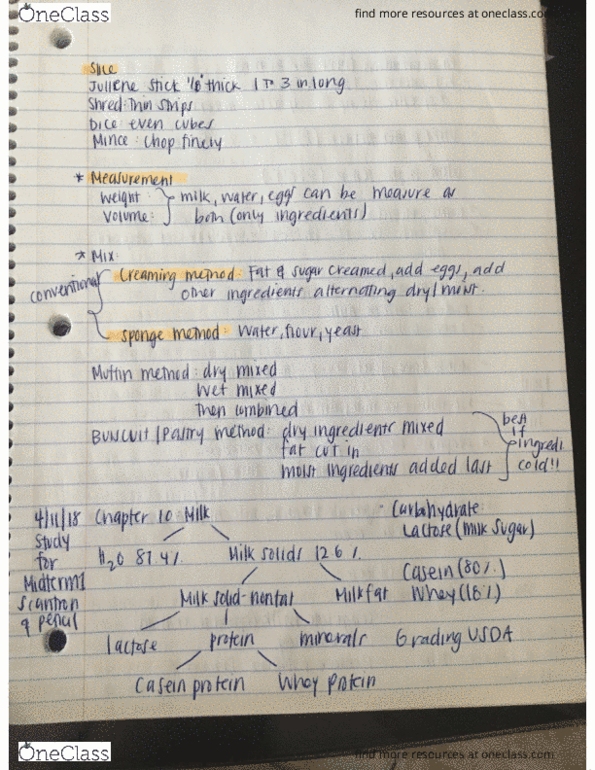 OneClass
find more resources at oneclass.com
Slice
Juliene stick 1/8" thick 1 to 3 in long
Shred: Thin strips
Dice even cubes
Mince: chop finely
* Measurement
weight: milk, water, eggs can be measure as
volume: both (only ingredients)
* Mix
conventional
Creaming method: Fat & sugar creamed, add eggs, add
other ingredients alternating dry/moist.
Sponge method: Water, flour, yeast
Muffin method: dry mixed
wet mixed
then combined
Buscuit/pastry method: dry ingredients mixed
fat cut in
moist ingredients added last
best
if
ingredi
cold!!
4/11/18 Chapter 10: Milk
Study
for
Midterm 1
scantron
& pencil
H2O 87.4% Milk solids 12.6%
Milk solid-nonfat Milk fat
lactose protein minerals
Casein protein Whey protein
Carbohydrate
Lactose (Milk sugar)
Casein (80%)
Whey (18%)
Grading USDA
OneClass
find more resources at oneclass.com